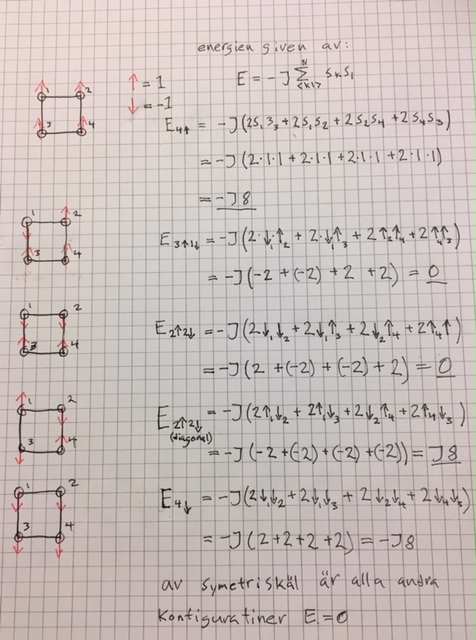 energien given av:
E = -J Σ<kl>^N SkSl
↑ = 1
↓ = -1
1 2
3 4
E4↑ = -J(2S1S3 + 2S1S2 + 2S2S4 + 2S4S3)
= -J(2·1·1 + 2·1·1 + 2·1·1 + 2·1·1)
= -J8
1 2
3 4
E3↑1↓ = -J(2·↓1·↑2 + 2·↓1↑3 + 2↑2↑4 + 2↑4↑3)
= -J(-2 + (-2) + 2 + 2) = 0
1 2
3 4
E2↑2↓ = -J(2↓1↓2 + 2↓1↑3 + 2↓2↑4 + 2↑4↑)
= -J(2 + (-2) + (-2) + 2) = 0
1 2
3 4
E2↑2↓ (diagonal) = -J(2↑1↓2 + 2↑1↓3 + 2↓2↑4 + 2↑4↓3)
= -J(-2 + (-2) + (-2) + (-2)) = J8
1 2
3 4
E4↓ = -J(2↓1↓2 + 2↓1↓3 + 2↓2↓4 + 2↓4↓3)
= -J(2+2+2+2) = -J8
av symetriskäl är alla andra
konfiguratiner E=0